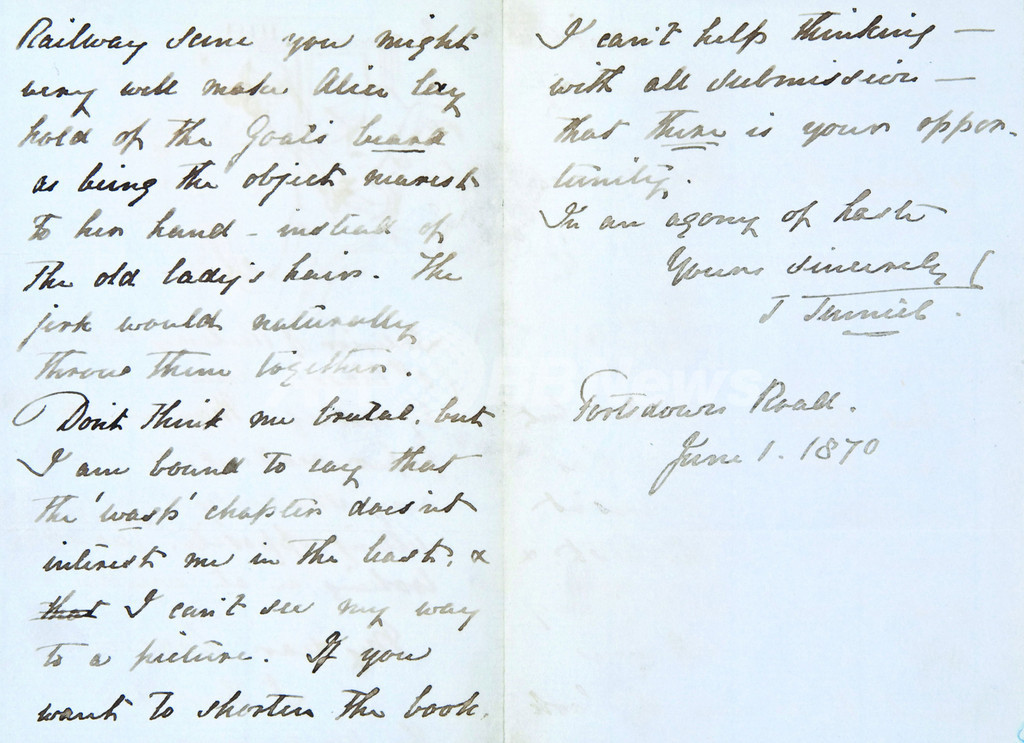 Railway scene you might
very well make Alice lay
hold of the Goat's beard
as being the object nearest
to her hand - instead of
the old lady's hair. The
jerk would naturally
throw them together.
Don't think me brutal, but
I am bound to say that
the 'wasp' chapter doesn't
interest me in the least, &
that I can't see my way
to a picture. If you
want to shorten the book,
I can't help thinking —
with all submission —
that there is your oppor-
tunity.
In an agony of haste
Yours sincerely
J Tenniel.
Portsdown Road.
June 1. 1870
News